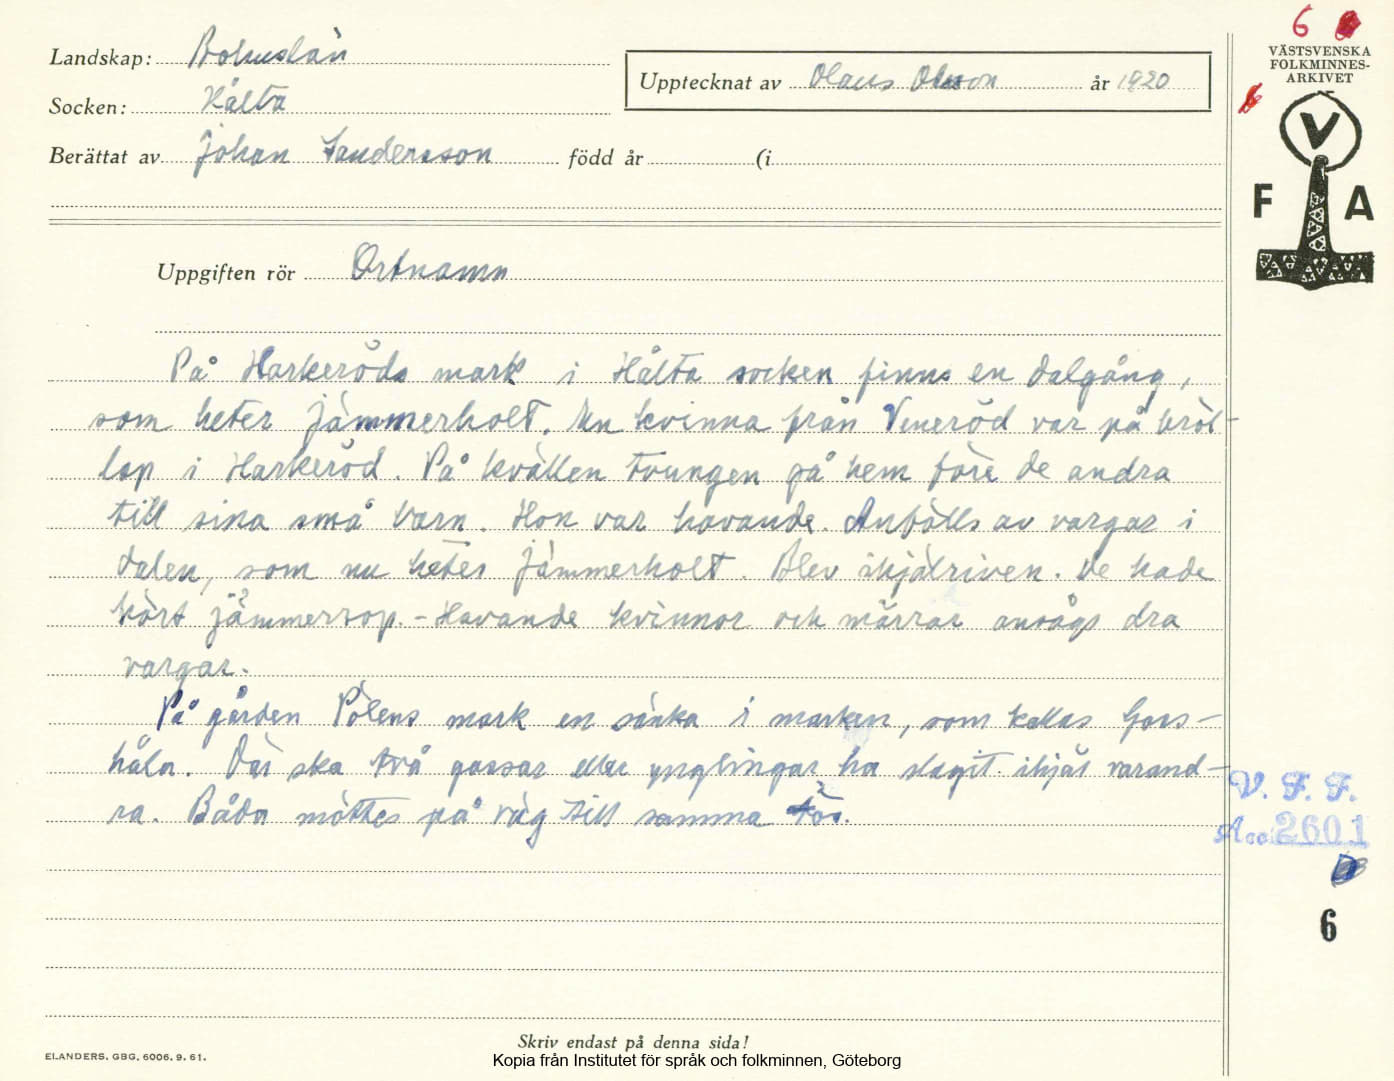 Landskap: Bohuslän
Socken: Hålta
Berättat av Johan Sandersson född år (i
Upptecknat av Olaus Olsson år 1920
6
VÄSTSVENSKA
FOLKMINNES-
ARKIVET
V
F A
Uppgiften rör Ortnamn
På Harkeröds mark i Hålta socken finns en dalgång,
som heter Jämmerholt. En kvinna från Veneröd var på bröl-
lop i Harkeröd. På kvällen tvungen gå hem före de andra
till sina små barn. Hon var havande. Anfölls av vargar i
dalen, som nu hetes Jämmerholt. Blev ihjälriven. De hade
hört jämmerrop. - Havande kvinnor och märrar ansågs dra
vargar.
På gården Pölens mark en sänka i marken, som kallas Gors-
håla. Där ska två gossar eller ynglingar ha slagit ihjäl varand-
ra. Båda möttes på väg till samma tös.
V. F. F.
Acc 2601
6
Skriv endast på denna sida!
ELANDERS. GBG. 6006. 9. 61.
Kopia från Institutet för språk och folkminnen, Göteborg